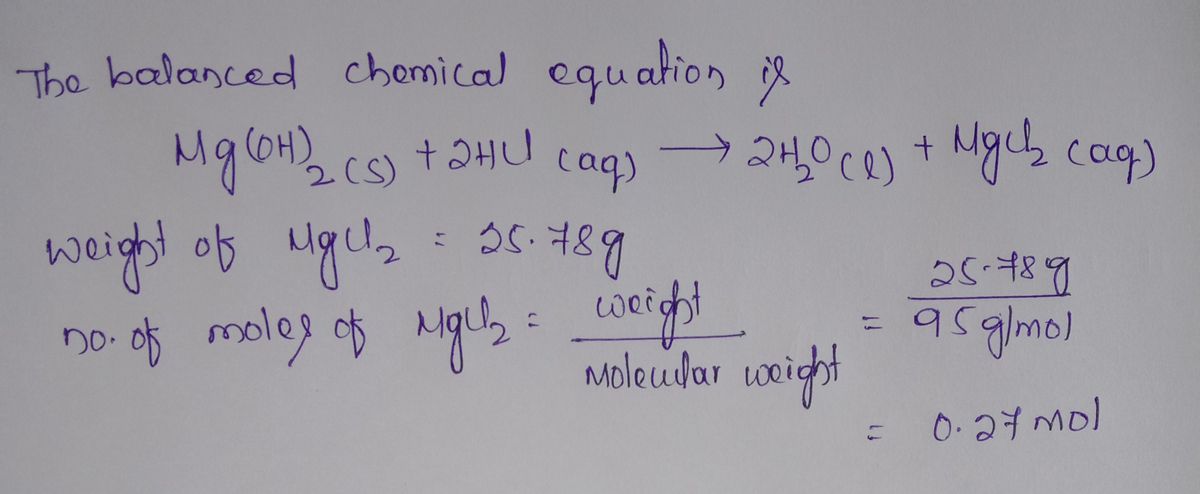 The balanced chemical equation is
Mg(OH)₂ (s) + 2HCl (aq) → 2H₂O (l) + MgCl₂ (aq)
weight of MgCl₂ = 25.78g
no. of moles of MgCl₂ = weight / Molecular weight = 25.78g / 95 g/mol
= 0.27 mol